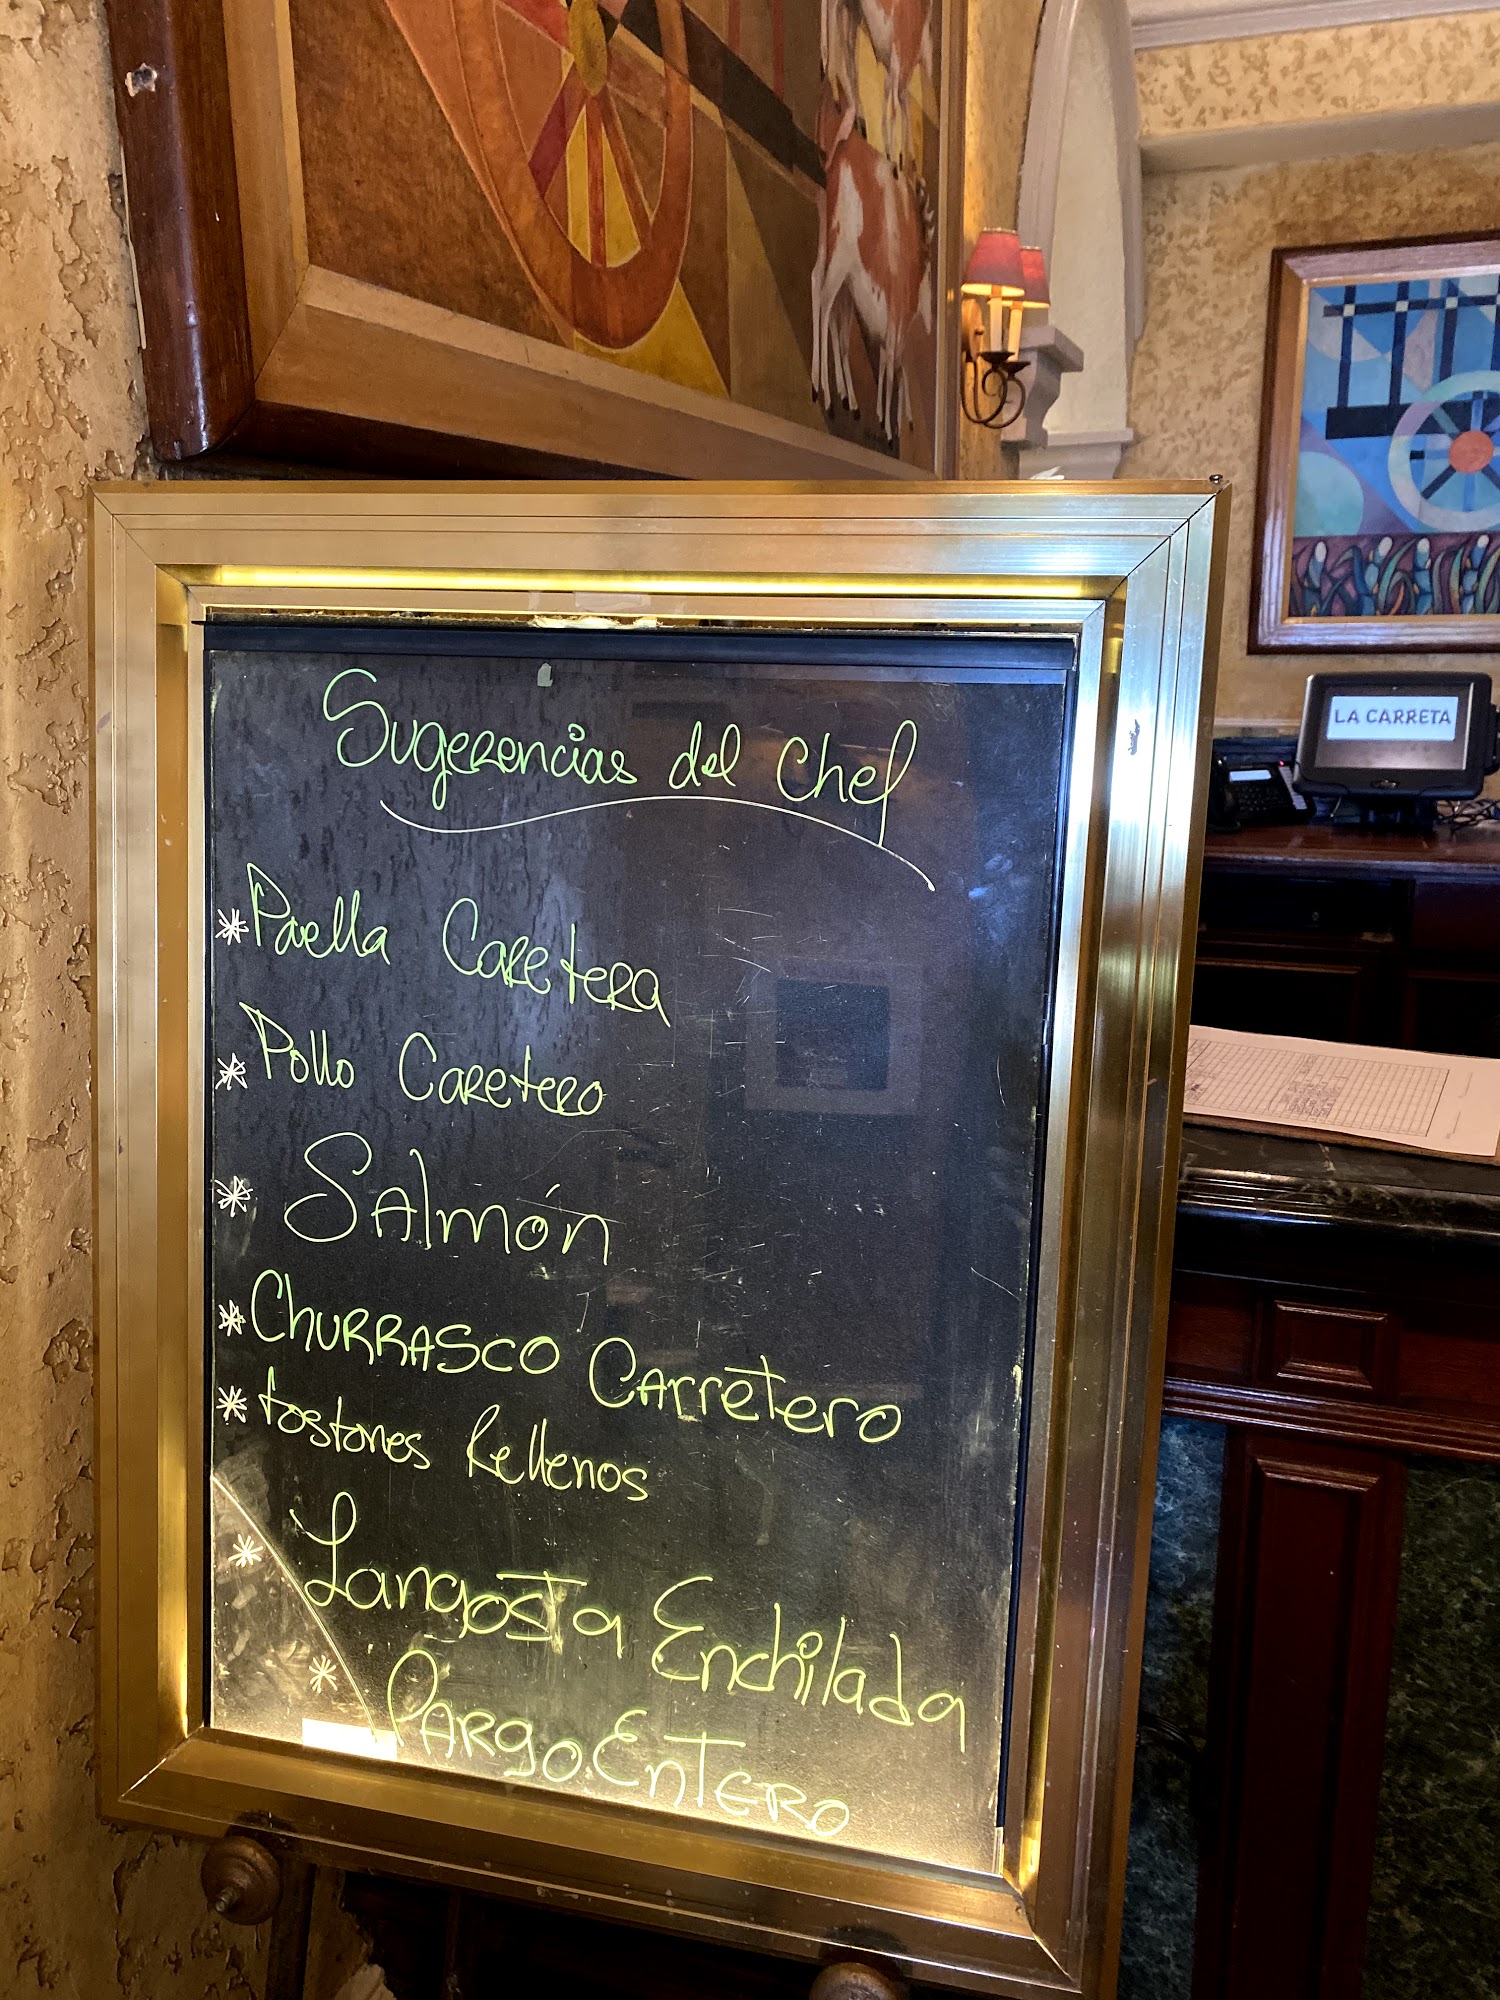 Sugerencias del Chef
* Paella Caretera
* Pollo Caretero
* Salmón
* Churrasco Carretero
* tostones Rellenos
* Langosta Enchilada
* Pargo Entero
LA CARRETA